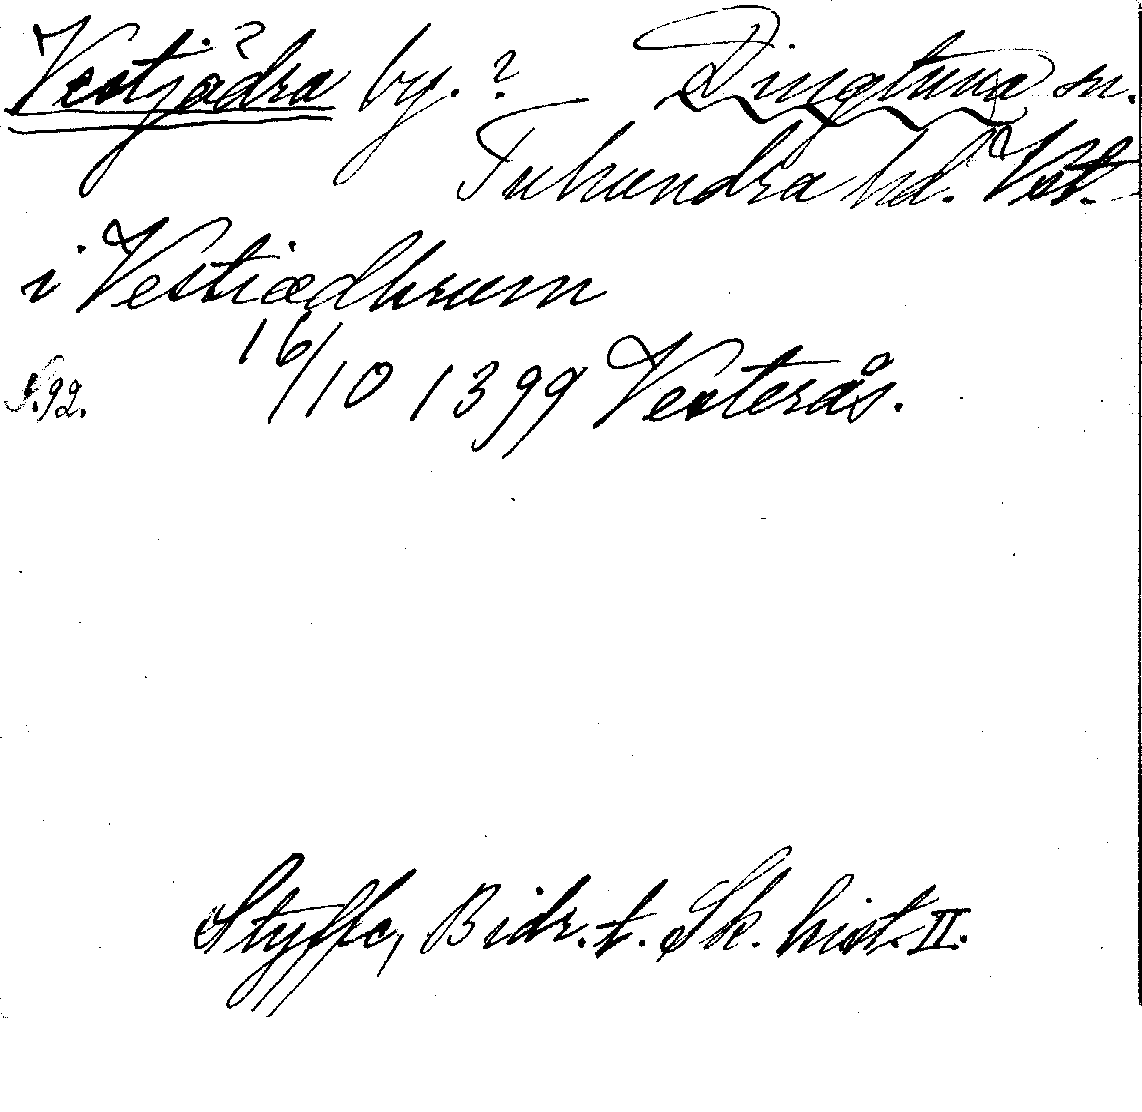 Vestjädra by.? Dingtuna sn.
Tuhundra hd. Vst.
i Vestiædhrum
S. 92. 16/10 1399 Vesterås.
Styffe, Bidr. t. Sk. hist. II.